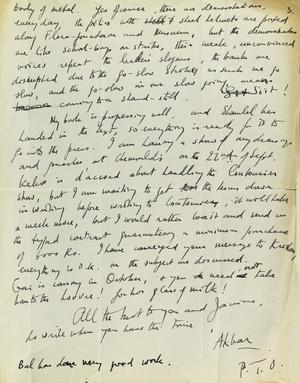 3.
body of metal. Yes of course, there are demonstrations.
everyday, the police with steel helmets are posted
along Flora-fountain and museum, but the demonstrators
are like school-boys on strike, their weak, unconvinced
voices repeat the leaders slogans, the banks are
disrupted due to the go-slow strikes as such we go
slow, and the go-slow in our slow going means
coming to a stand-still.
My book is progressing well, and
handed in the text, so everything is ready for it to
go into the press. I am having a show of my drawings
and at Chemoulds on the 22nd of Sept.
is d'accord about handling the
show, but I am waiting to get the terms down
in writing before writing to it will take
a week more, but I would rather wait and send in
the typed contract guaranteeing a minimum purchase
of Rs. I have conveyed your message to
everything is O.K. on the subject we discussed.
Gai is coming in October, you need not take
him to the for his glass of milk!
All the best to you and Janine,
do write when you have the time
Akbar
Bal has done very good work.
P. T. O.